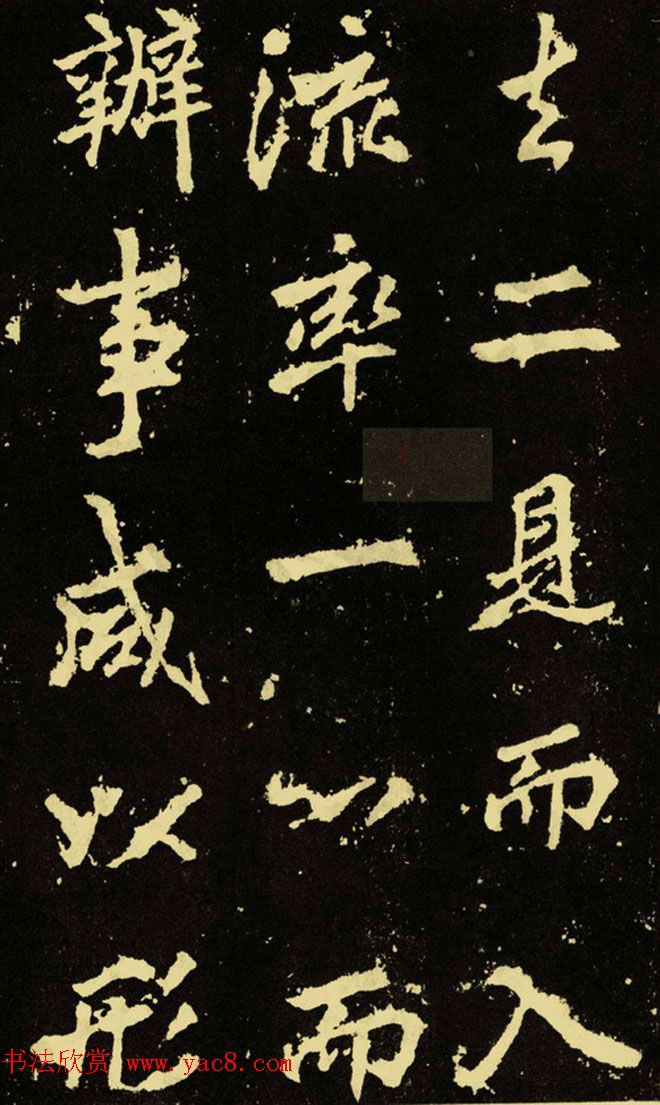 去二見而入
流率一心而
辨事咸以形
书法欣赏 www.yac8.com